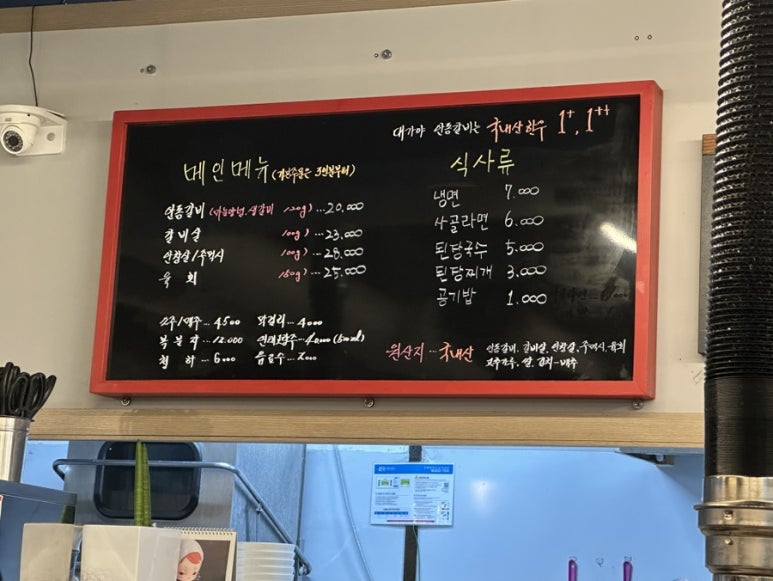 대가야 안동갈비는 국내산 한우 1+, 1++
메인메뉴 (기본주문은 3인분부터)
안동갈비 (마늘양념, 생갈비 120g) ... 20.000
갈비살 100g) ... 23.000
안창살/주먹시 100g) ... 28.000
육회 150g) ... 25.000
소주/맥주 ... 4500
복분자 ... 12.000
청하 ... 6000
막걸리 ... 4000
음료수 ... 2000
식사류
냉면 7.000
사골라면 6.000
된장국수 5.000
된장찌개 3.000
공기밥 1.000
원산지 ... 국내산
안동갈비, 갈비살, 안창살, 주먹시, 육회
고추가루, 쌀, 김치-배추